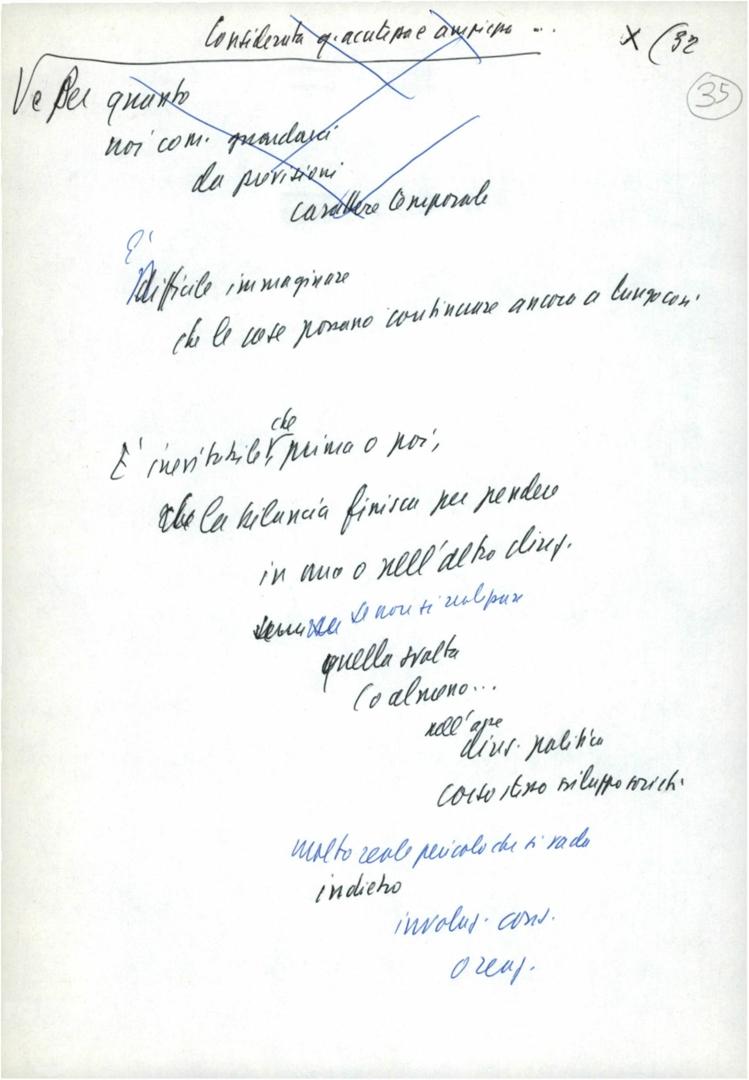 Considerata q. acutezza e ampiezza ...
X (32
35
Per quanto
noi com. guardarci
da previsioni
carattere temporale
È
difficile immaginare
che le cose possano continuare ancora a lungo così
che
È inevitabile, prima o poi,
che la bilancia finisca per pendere
in una o nell'altra direz.
se non si realizza
quella svolta
(o almeno...
nell'
direz. politica
corso stesso sviluppo
molto reale pericolo che si vada
indietro
involuz. cons.
o reaz.